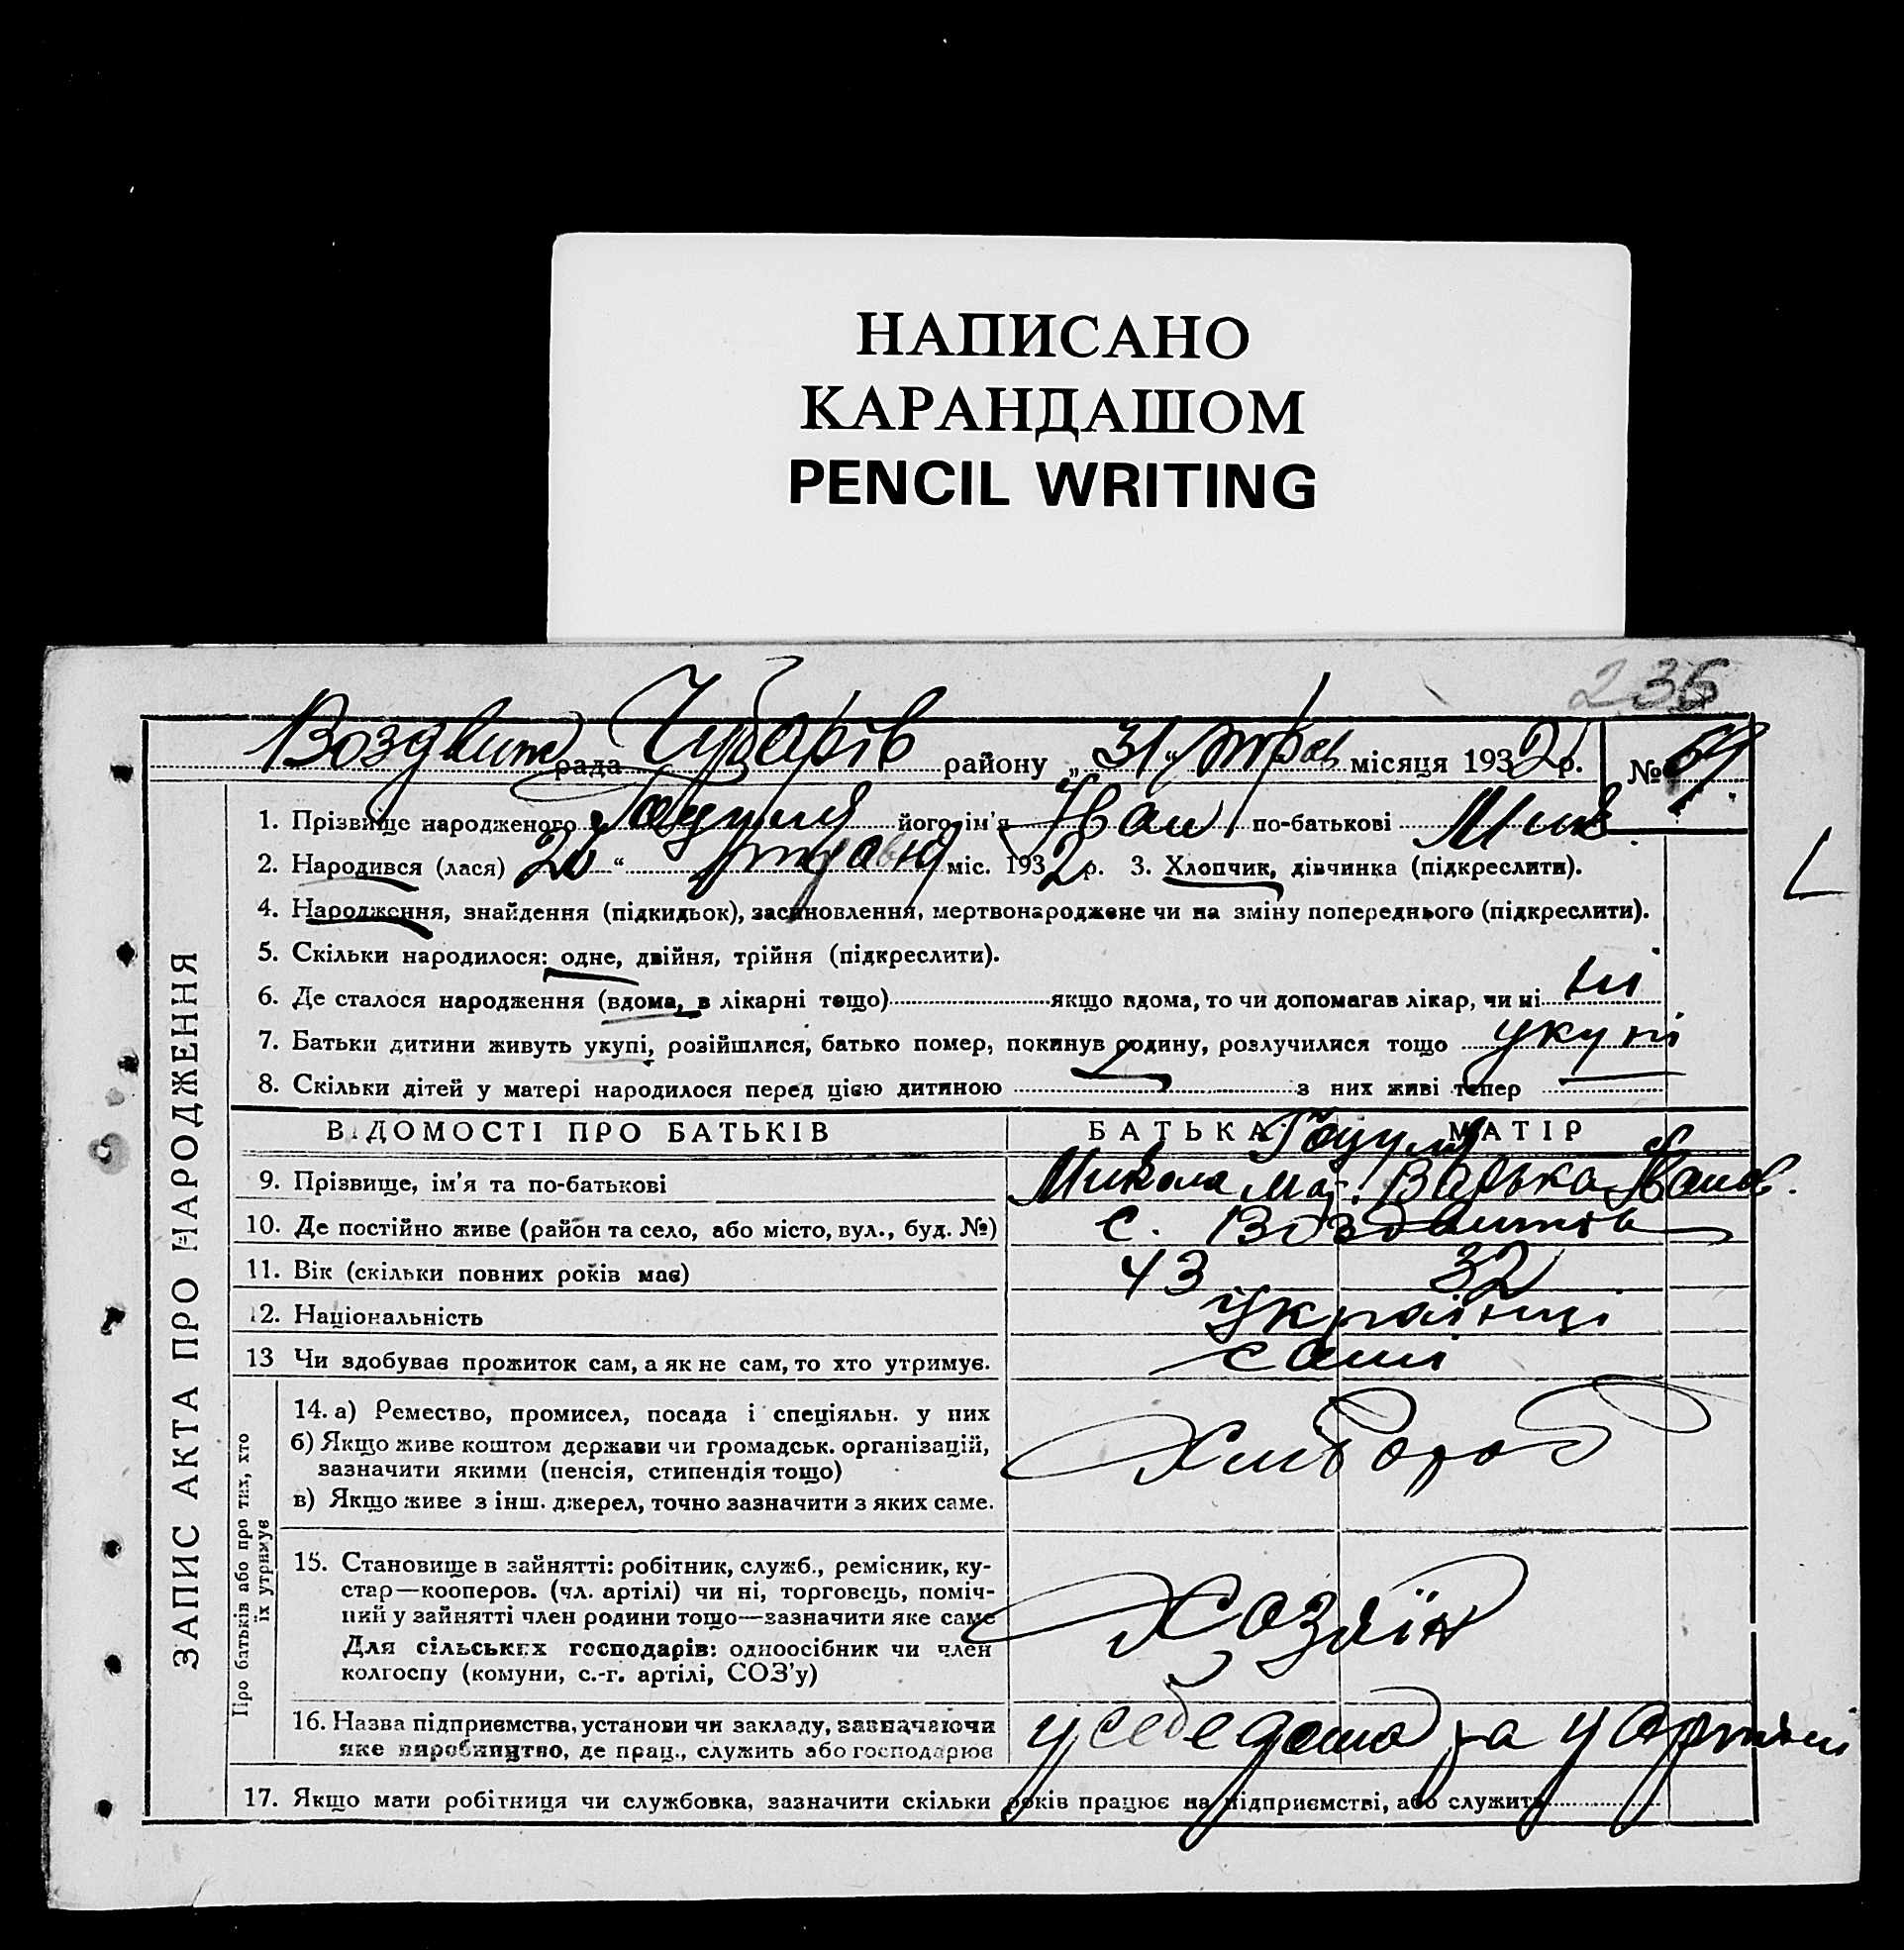 НАПИСАНО
КАРАНДАШОМ
PENCIL WRITING
236
Воздвиж рада Чубарів району „31“ трав місяця 1932 р. № 69
1. Прізвище народженого його ім'я Іван по-батькові Мик.
2. Народився (лася) „ “ травня міс. 1932 р. 3. Хлопчик, дівчинка (підкреслити).
4. Народження, знайдення (підкидьок), засиновлення, мертвонароджене чи на зміну попереднього (підкреслити).
5. Скільки народилося: одне, двійня, трійня (підкреслити).
6. Де сталося народження (вдома, в лікарні тощо) якщо вдома, то чи допомагав лікар, чи ні ні
7. Батьки дитини живуть укупі, розійшлися, батько помер, покинув родину, розлучилися тощо укупі
8. Скільки дітей у матері народилося перед цією дитиною з них живі тепер
ЗАПИС АКТА ПРО НАРОДЖЕННЯ
ВІДОМОСТІ ПРО БАТЬКІВ БАТЬКА МАТІР
9. Прізвище, ім'я та по-батькові Микола Варька Іванов.
10. Де постійно живе (район та село, або місто, вул., буд. №) с. Воздвижів
11. Вік (скільки повних років має) 43 32
12. Національність українці
13 Чи здобував прожиток сам, а як не сам, то хто утримує. сами
Про батьків або про тих, хто
їх утримує
14. а) Ремество, промисел, посада і спеціяльн. у них Хлібороб
б) Якщо живе коштом держави чи громадськ. організацій,
зазначити якими (пенсія, стипендія тощо)
в) Якщо живе з інш. джерел, точно зазначити з яких саме.
15. Становище в зайнятті: робітник, служб., ремісник, ку-
стар—кооперов. (чл. артілі) чи ні, торговець, поміч-
ний у зайнятті член родини тощо—зазначити яке саме
Хозяїн
Для сільських господарів: одноосібник чи член
колгоспу (комуни, с.-г. артілі, СОЗ'у)
16. Назва підприємства, установи чи закладу, зазначаючи
яке виробництво, де прац., служить або господарює
у себе дома та у артілі
17. Якщо мати робітниця чи службовка, зазначити скільки років працює на підприємстві, або служить